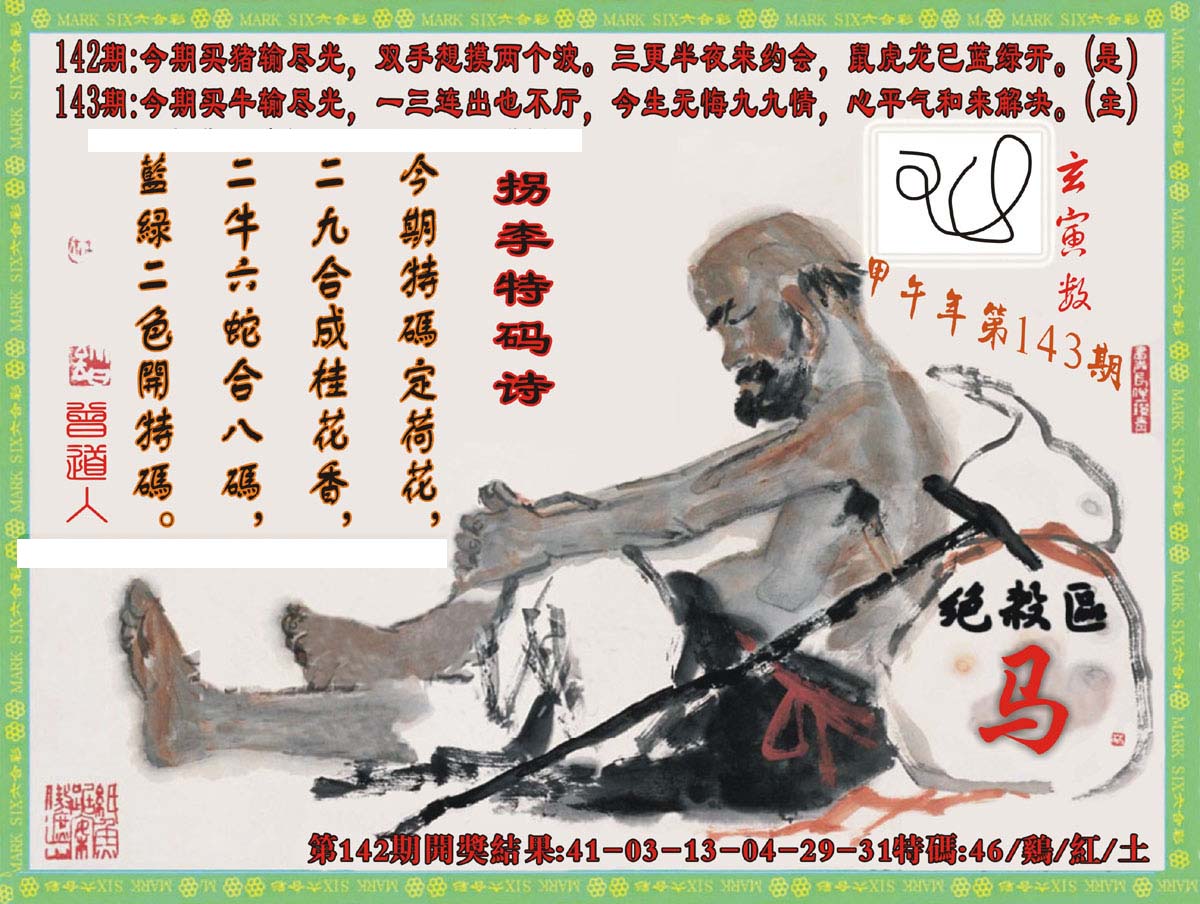 MARK SIX六合彩
142期:今期买猪输尽光，双手想摸两个波。三更半夜来约会，鼠虎龙已蓝绿开。(是)
143期:今期买牛输尽光，一三连出也不厅，今生无悔九九情，心平气和来解决。(主)
玄寅数
甲午年第143期
拐李特码诗
今期特碼定荷花，
二九合成桂花香，
二牛六蛇合八碼，
藍綠二色開特碼。
曾道人
绝殺區
马
第142期開獎結果:41-03-13-04-29-31特碼:46/鷄/紅/土